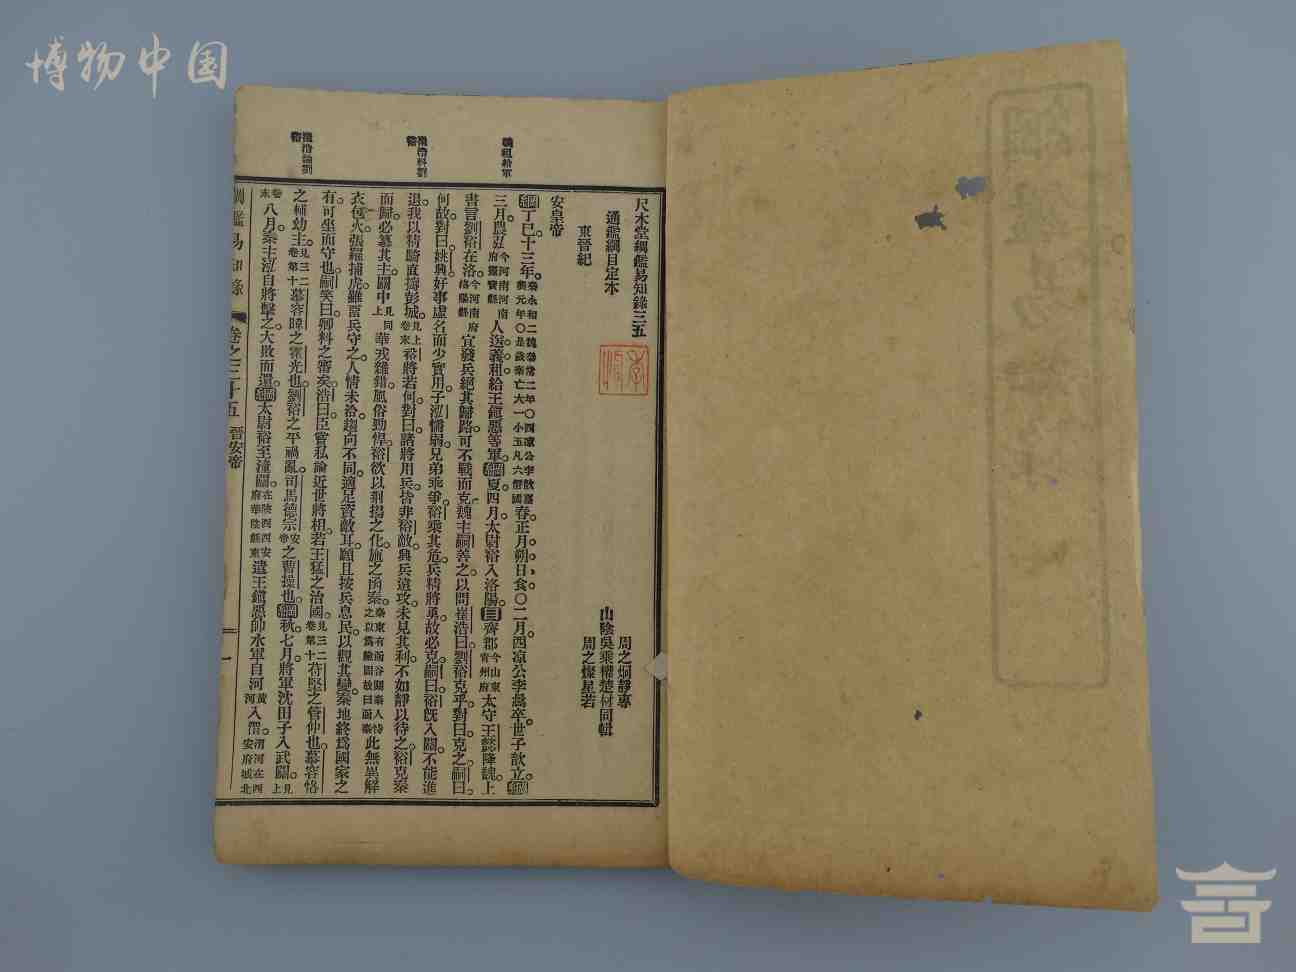 博物中国
尺木堂綱鑑易知錄三五
通鑑綱目定本
東晉紀
周之炯靜專
山陰吳乘權楚材同輯
周之燦星若
安皇帝
綱丁巳十三年。秦永和二魏泰常二年○西涼公李歆嘉興元年○是歲秦亡大一小五凡六僭國春。正月朔。日食。○二月。西涼公李暠卒。世子歆立。綱
三月。農弘今河南河南府靈寶縣人送義租給王鎮惡等軍。綱夏四月。太尉裕入洛陽。目齊郡今山東青州府太守王懿降魏。上
書言劉裕在洛。今河南府洛陽縣宜發兵絕其歸路。可不戰而克。魏主嗣善之。以問崔浩曰。劉裕克乎。對曰。克之。嗣曰。
何故。對曰。姚興好事虛名而少實用。子泓懦弱。兄弟乖爭。裕乘其危。兵精將勇。故必克。嗣曰。裕既入關。不能進
退。我以精騎直擣彭城。見上卷末裕將若何。對曰。諸將用兵。皆非裕敵。興兵遠攻。未見其利。不如靜以待之。裕克秦
而歸。必篡其主。關中見上同華戎雜錯。風俗勁悍。裕欲以荊揚之化。施之函秦。秦東有函谷關秦人恃之以為險固故曰函秦此無異解
衣包火。張羅捕虎。雖留兵守之。人情未洽。趨向不同。適足資敵耳。願且按兵息民。以觀其變。秦地終為國家之
有。可坐而守也。嗣笑曰。卿料之審矣。浩曰。臣嘗私論近世將相。若王猛之治國。見三二卷第十苻堅之管仲也。慕容恪
之輔幼主。見三二卷第十慕容暐之霍光也。劉裕之平禍亂。司馬德宗安帝之曹操也。綱秋七月。將軍沈田子入武關。見上
卷末八月。秦主泓自將擊之。大敗而還。綱太尉裕至潼關。在陝西西安府華陰縣東遣王鎮惡帥水軍自河黃河入渭。渭河在西安府城北
綱鑑易知錄
卷之三十五
晉安帝
一